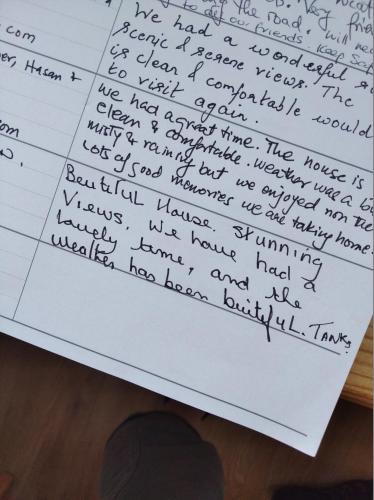 the road, will
to all our friends. Keep Saf
We had a wonderful
.com
scenic & serene views. The
is clean & comfortable would
to visit again.
, Hasan &
we had a great time. The house is
clean & comfortable. Weather was a
misty & raining but we enjoyed non the
lots of good memories we are taking home.
om
Beutiful House. Stunning
Views. We have had a
lovely tame, and the
weather has been buiteful. Tanks.